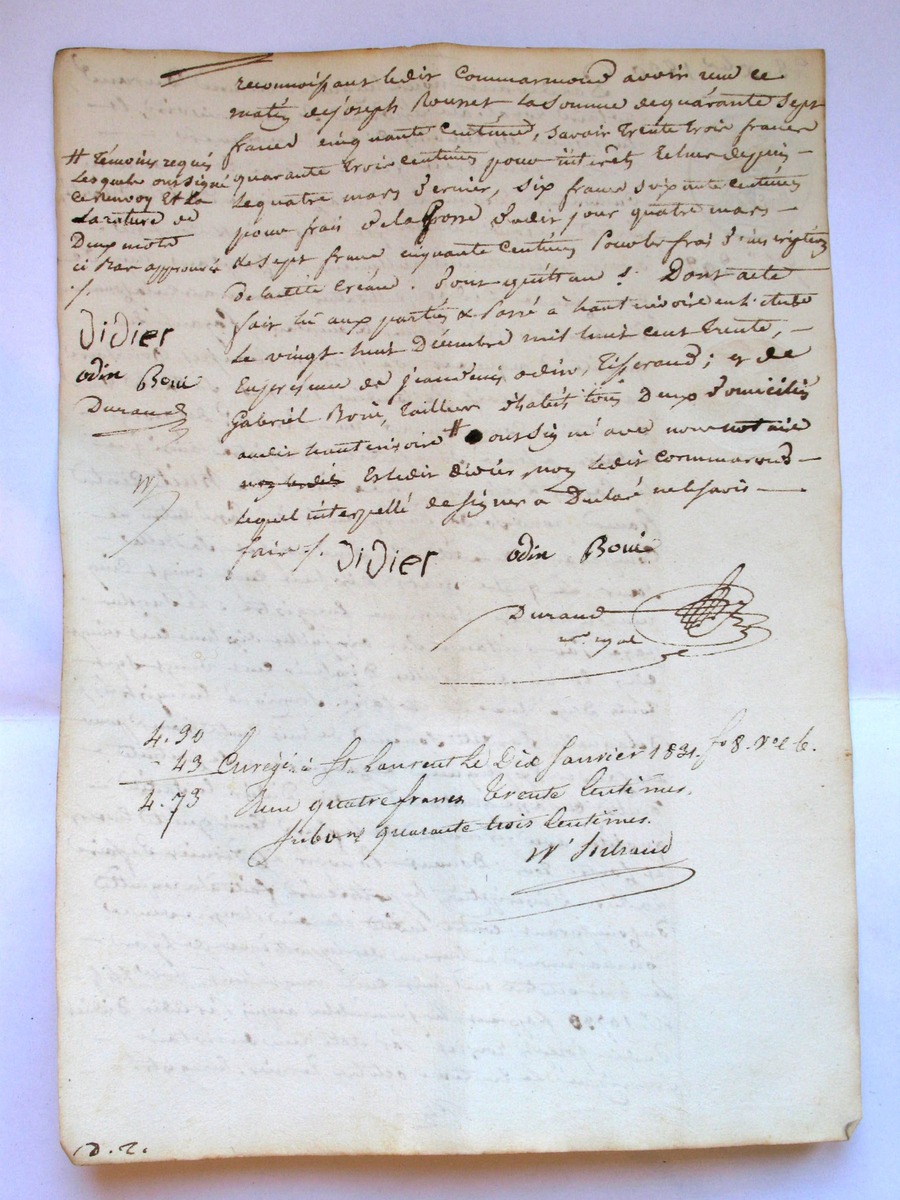 reconnoissant ledit Commarmond avoir reçu ce
matin de joseph Rousset la somme de quarante sept
francs cinquante centimes, savoir trente trois francs
quarante trois centimes pour intérêts échus depuis
le quatre mars dernier, six francs soixante centimes
pour frais de la Grosse dudit jour quatre mars
& sept francs cinquante centimes pour les frais d'inscription
de la dite créance. Dont quittance. Dont acte
fait lû aux parties & Passé à haut
le vingt huit Décembre mil huit cent trente,
En présence de jean denis odin, Tisserand; et de
Gabriel Boui, Tailleur d'habits tous deux domiciliés
audit # ont signé avec nous notaire
Et ledit didier, non ledit Commarmond
lequel interpellé de signer a Déclaré ne le savoir
faire ./.
# témoins requis
Lesquels ont signé
Ce Renvoi Et la
La rature de
Deux mots
ci Bas approuvés
./.
Didier
odin Boui
Durand
Didier odin Boui
Durand
4.30
43
4.73
Enregé. à St. Laurent Le Dix Janvier 1831. fo 8. Vo C 6.
Reçu quatre francs trente Centimes.
Subvon quarante trois Centimes.
D. 2.